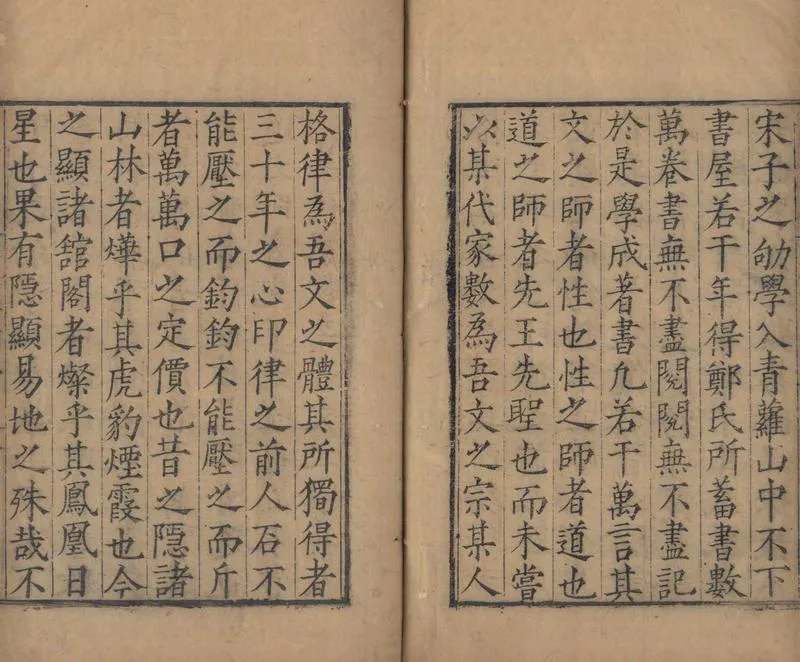 宋子之劬學入青蘿山中不下
書屋若干年得鄭氏所蓄書數
萬卷書無不盡閱閱無不盡記
於是學成著書凡若干萬言其
文之師者性也性之師者道也
道之師者先王先聖也而未嘗
以某代家數為吾文之宗某人
格律為吾文之體其所獨得者
三十年之心印律之前人石不
能壓之而鈞鈞不能壓之而斤
者萬萬口之定價也昔之隱諸
山林者燁乎其虎豹煙霞也今
之顯諸舘閣者燦乎其鳳凰日
星也果有隱顯易地之殊哉不